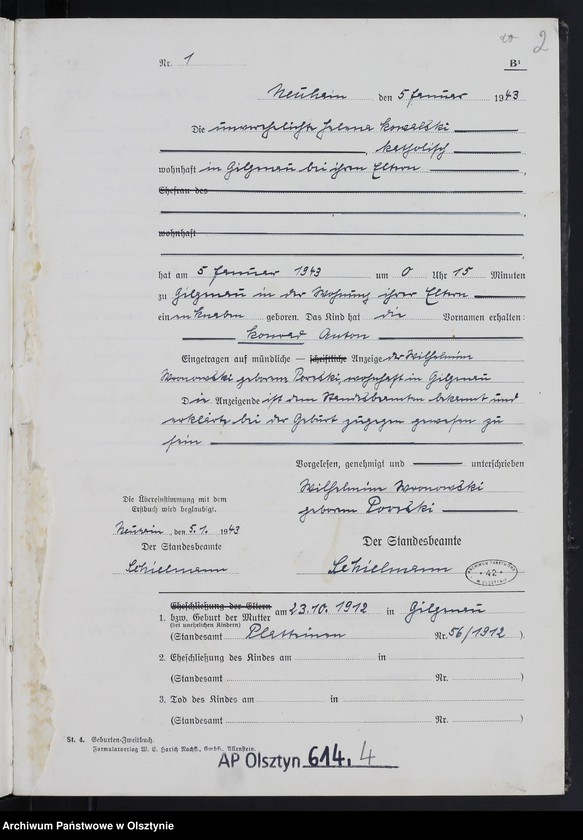 2
Nr. 1
B¹
den 5 Januar 1943
Die unverehelichte Helena Kowalski
, katholisch
wohnhaft in Gilgenau bei ihren Eltern ,
Ehefrau des
,
wohnhaft
,
hat am 5 Januar 1943 um 0 Uhr 15 Minuten
zu Gilgenau in der Wohnung ihrer Eltern
einen Knaben geboren. Das Kind hat die Vornamen erhalten:
Konrad Anton
Eingetragen auf mündliche — schriftliche Anzeige der Wilhelmine
Woronowski geborene wohnhaft in Gilgenau
Die Anzeigende ist dem Standesbeamten bekannt und
erklärte bei der Geburt zugegen gewesen zu
sein
Vorgelesen, genehmigt und unterschrieben
Wilhelmine Woronowski
geborene
Die Übereinstimmung mit dem
Erstbuch wird beglaubigt.
, den 5.1. 1943
Der Standesbeamte
Schielmann
Der Standesbeamte
Schielmann
ARCHIWUM PAŃSTWOWE
42
W OLSZTYNIE
1. Eheschließung der Eltern
bzw. Geburt der Mutter
(bei unehelichen Kindern)
am 23.10.1912 in Gilgenau
(Standesamt Nr. 56/1912 )
2. Eheschließung des Kindes am in
(Standesamt Nr. )
3. Tod des Kindes am in
(Standesamt Nr. )
St. 4. Geburten-Zweitbuch.
Formularverlag W. E. Harich Nachfl., GmbH., Allenstein.
AP Olsztyn 614. 4
Archiwum Państwowe w Olsztynie